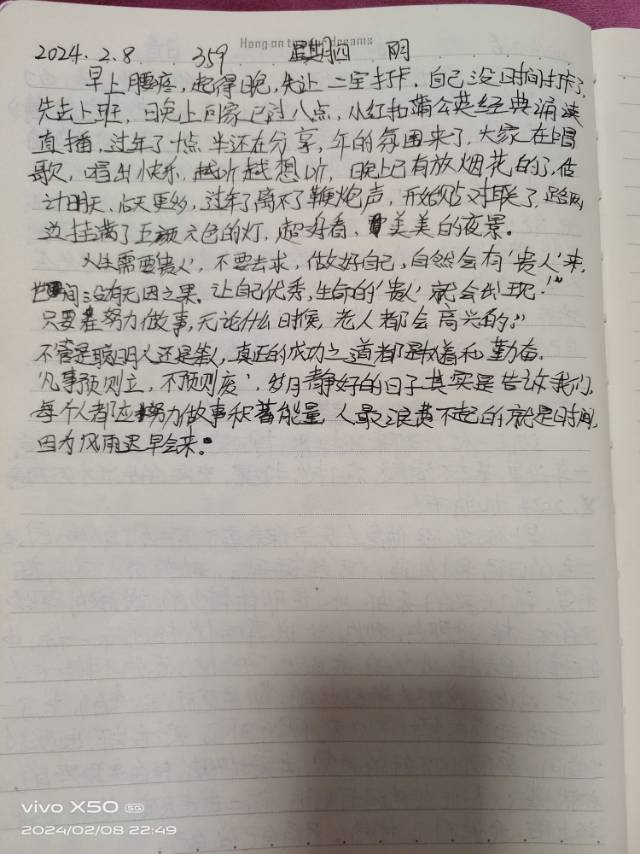 Hang on to your dreams
2024.2.8 359 星期四 阴
早上腰疼，起得晚，先让二宝打卡，自己没时间打卡了，
先去上班，日晚上回家已过八点，从红扣蒲公英经典诵读
直播，过年了十点半还在分享，年的氛围来了，大家在唱
歌，唱出快乐，越听越想听，晚上已有放烟花的了，估
计明天、后天更多，过年了离不了鞭炮声，开始贴对联了，路两
边挂满了五颜六色的灯，超好看，美美的夜景。
人生需要'贵人'，不要去求，做好自己，自然会有'贵人'来，
世间没有无因之果。让自己优秀，生命的'贵人'就会出现！"
只要在努力做事，无论什么时候，老人都会高兴的。"
不管是聪明人还是笨人，真正的成功之道都是执着和勤奋。
'凡事预则立，不预则废'，岁月静好的日子其实是告诉我们，
每个人都应努力做事积蓄能量，人最浪费不起的就是时间，
因为风雨迟早会来。
vivo X50 5G
2024/02/08 22:49